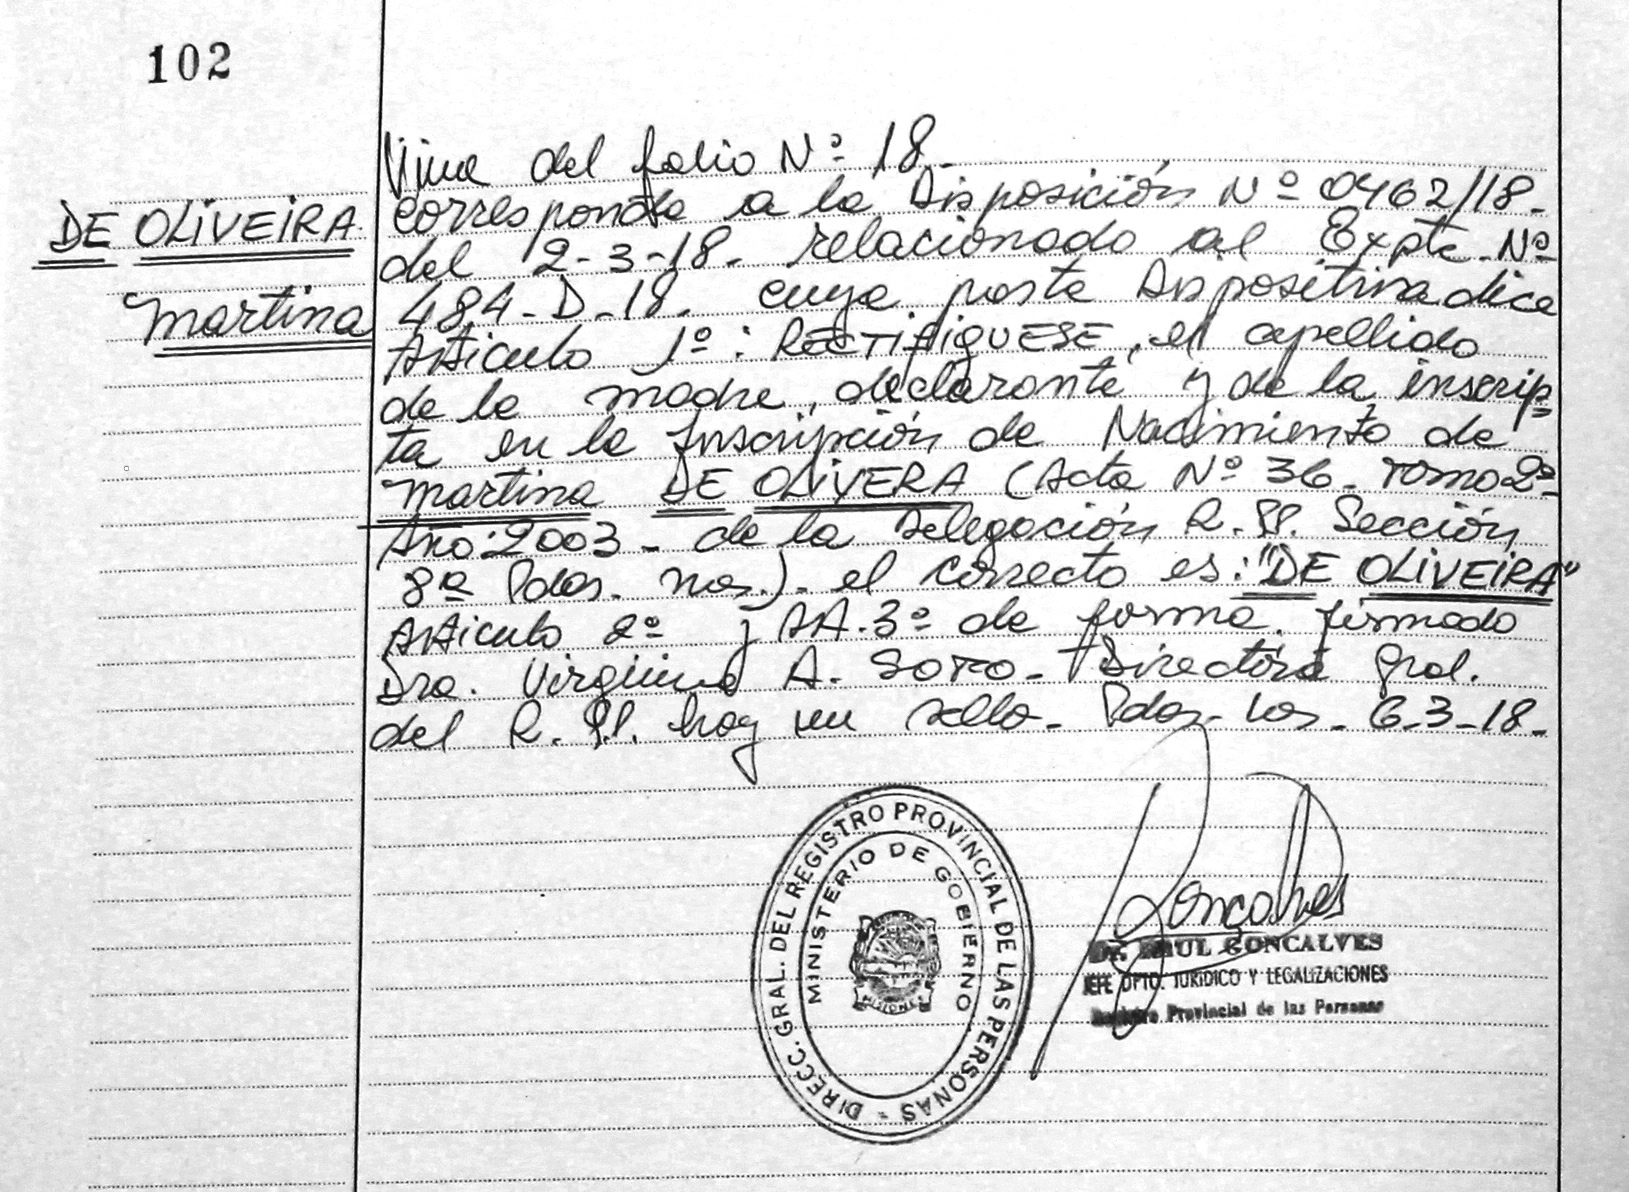 102
DE OLIVEIRA
Martina
Viene del folio Nº 18.-
corresponde a la Disposición Nº 0462/18.-
del 2-3-18.- relacionado al Expte. Nº
484-D-18. cuya parte Dispositiva dice
Artículo 1º: RECTIFIQUESE, el apellido
de la madre, declarante y de la inscrip=
ta en la Inscripción de Nacimiento de
Martina DE OLIVERA (Acta Nº 36. Tomo 2º-
Año: 2003 - de la Delegación R.PP. Sección
8ª Pdas. Mnes.). el correcto es: "DE OLIVEIRA"
Artículo 2º y Art. 3º de forma. firmado
Dra. Virginia A. SOTO.- Directora Gral.
del R.P.P. hay un sello.- Pdas.- 6-3-18.-
DIRECC. GRAL. DEL REGISTRO PROVINCIAL DE LAS PERSONAS -
MINISTERIO DE GOBIERNO
MISIONES
Goncalves
Dr. RAUL GONCALVES
JEFE DPTO. JURIDICO Y LEGALIZACIONES
Registro Provincial de las Personas